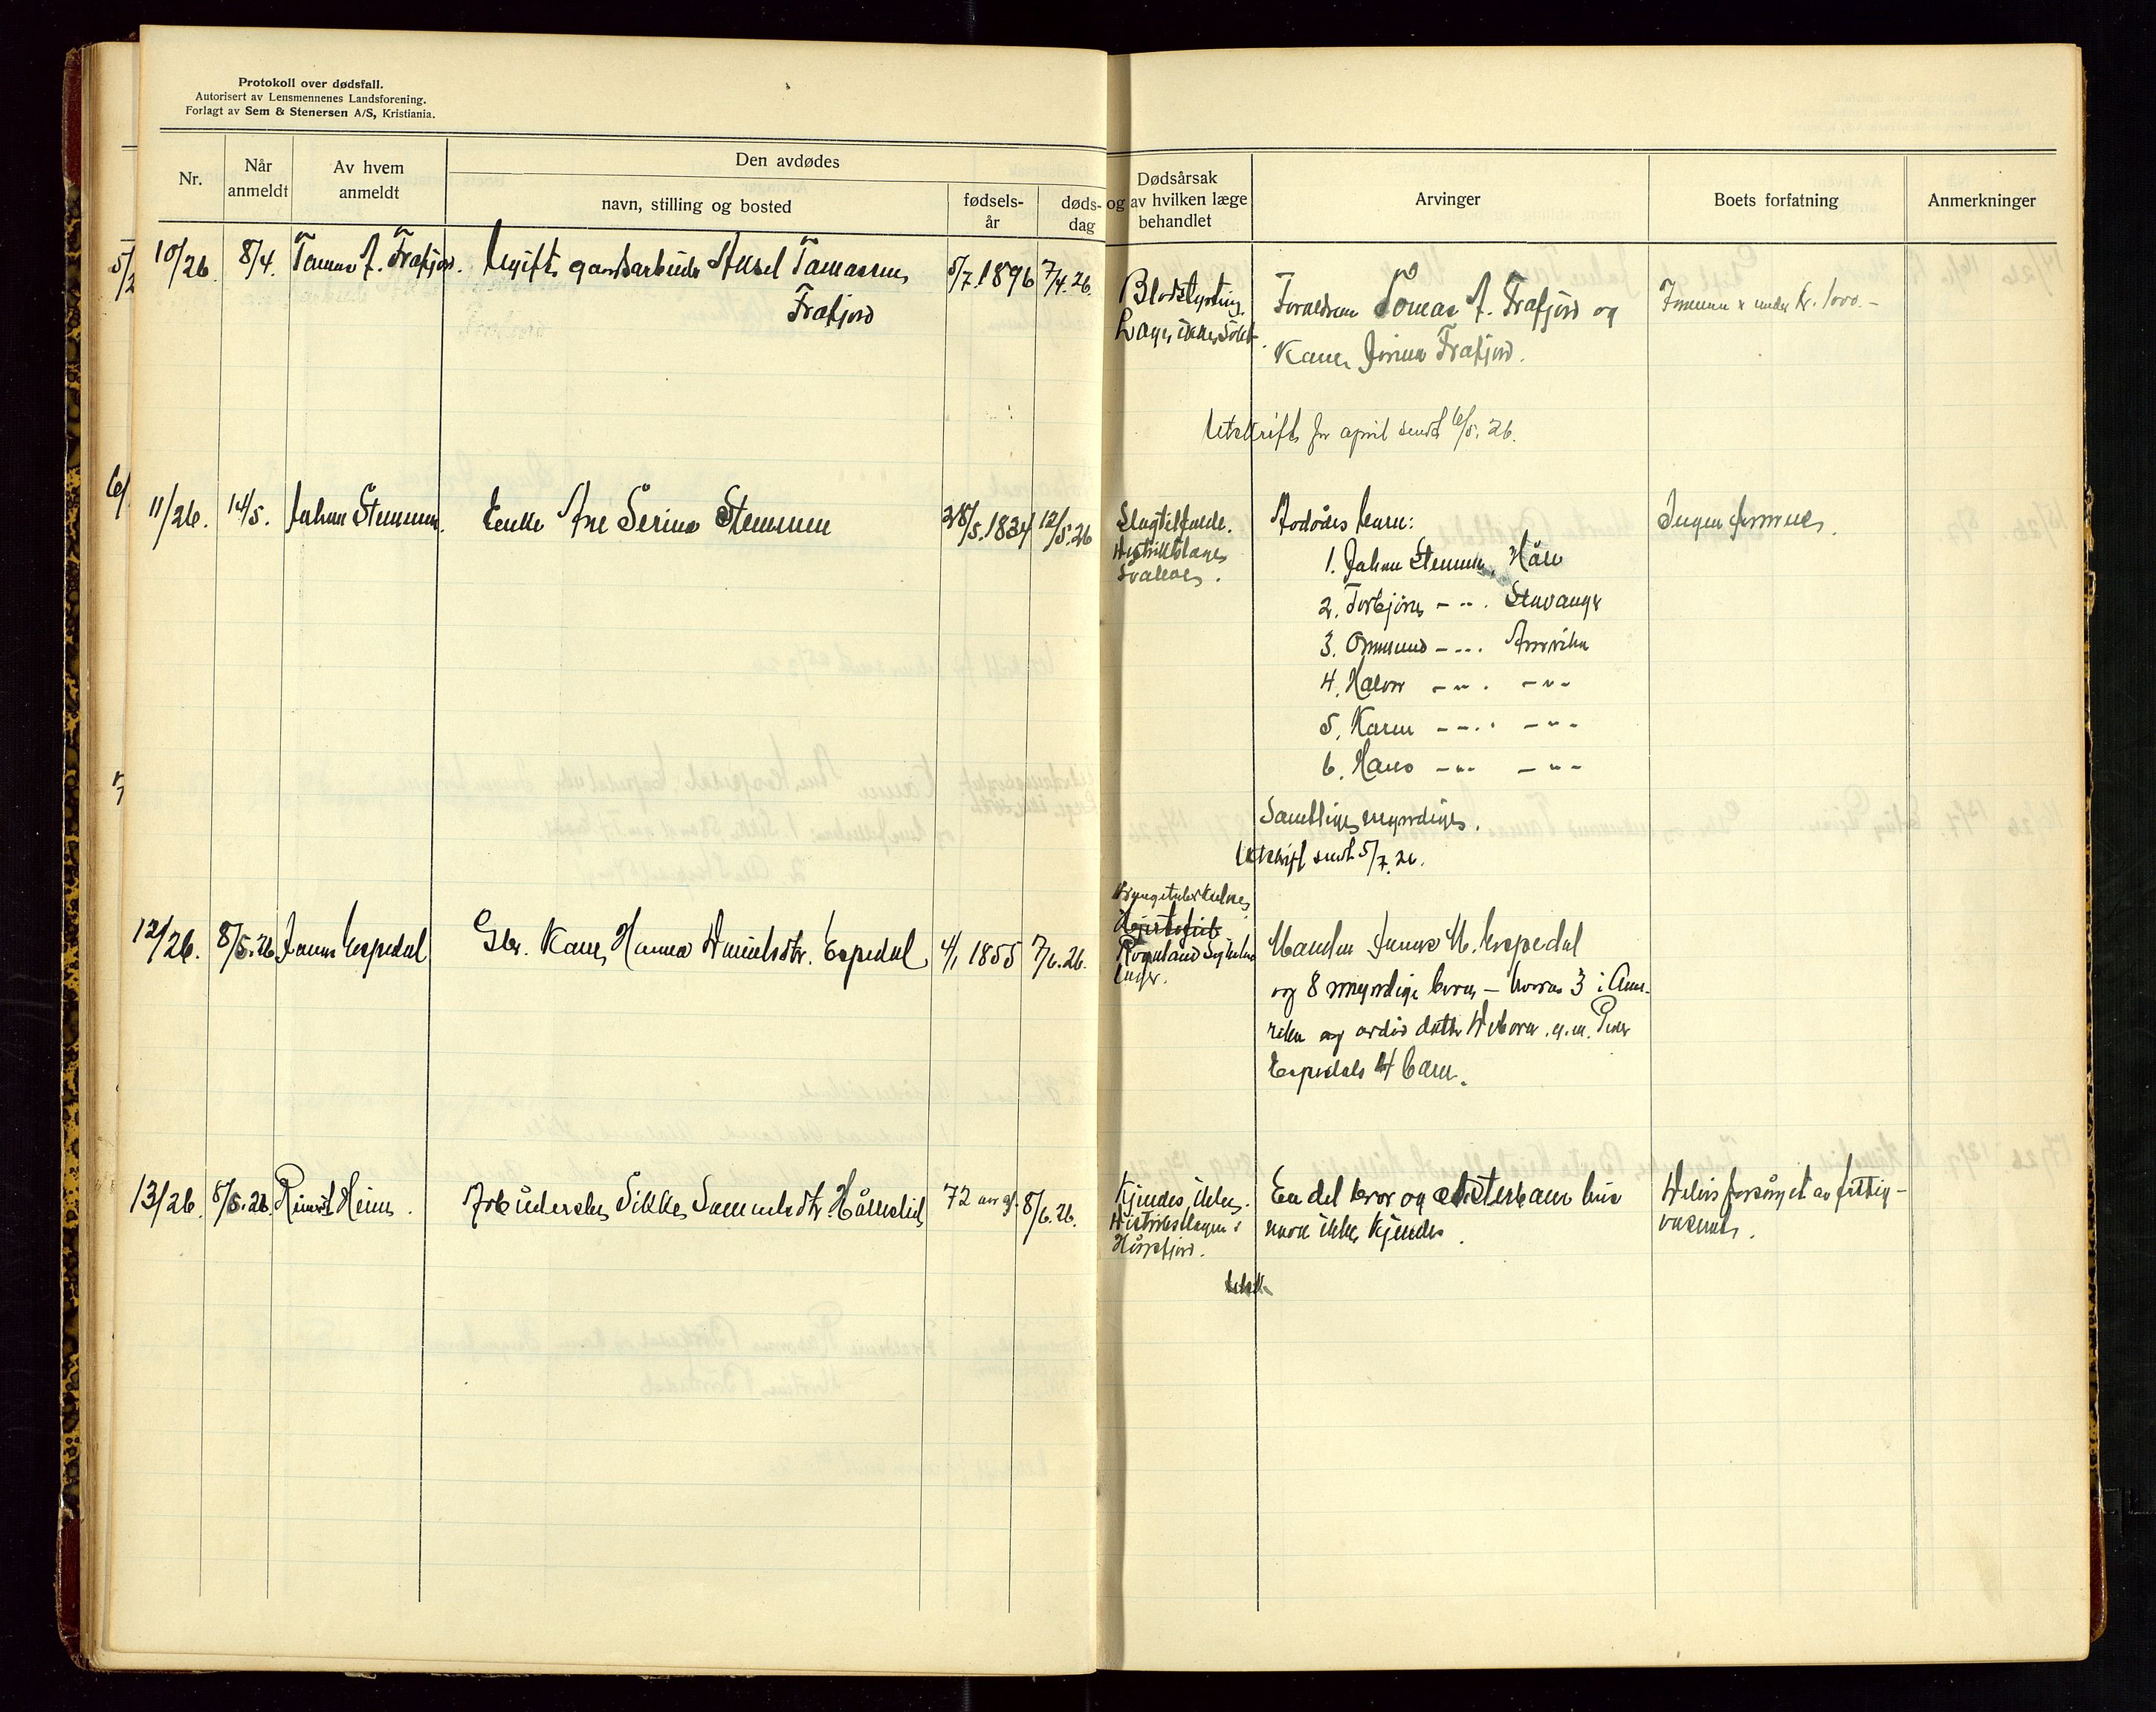 Protokoll over dødsfall.
Autorisert av Lensmennenes Landsforening.
Forlagt av Sem & Stenersen A/S, Kristiania.
Nr.
Når anmeldt
Av hvem anmeldt
Den avdødes
navn, stilling og bosted
fødsels-år
døds-dag
Dødsårsak og av hvilken læge behandlet
Arvinger
Boets forfatning
Anmerkninger
10/26. 8/4. Tomas A. Frafjord. Ugift gaardsarbeider Aksel Tomassen
Frafjord
5/7.1896 7/4.26.
Blodstyrtning.
Læge ikke søkt.
Forældrene Tomas A. Frafjord og
Kone Frafjord.
Formuen under kr. 1000.-
Utskrift for april sendt 6/5.26.
11/26. 14/5. Johan Stemmen. Enke Ane Serine Stemmen
28/5.1834 12/5.26
Slagtilfælde.
Distriktslæge
Avdødes barn:
1. Johan Stemmen, Håle
2. Torbjørn - " - . Stavanger
3. Ommund - " - . Amerika
4. Halvor - " - . - " -
5. Karen - " - . - " -
6. Hans - " - - " -
Samtlige myndige.
Utskrift sendt 5/7.26.
Ingen formue.
12/26. 8/6.26. Jonas Espedal
Gbr. Kone Hanna Danielsdtr. Espedal
4/1 1855 7/6.26.
Lungetuberkulose
Rogaland Sykehus
læger.
Manden Jonas M. Espedal
og 8 myndige barn - hvorav 3 i Ame-
rika og avdød datter Debora g. m. Peder
Espedals 4 barn.
13/26. 8/6.26. Reinert Heim.
Sikke Samuelsdtr. Hålleslid
72 aar gl. 8/6.26.
Kjendes ikke.
Distriktslægen i
Høgsfjord.
En del bror og søsterbarn hvis
navn ikke kjendes.
Delvis forsørget av fattig-
væsenet.
Utsk